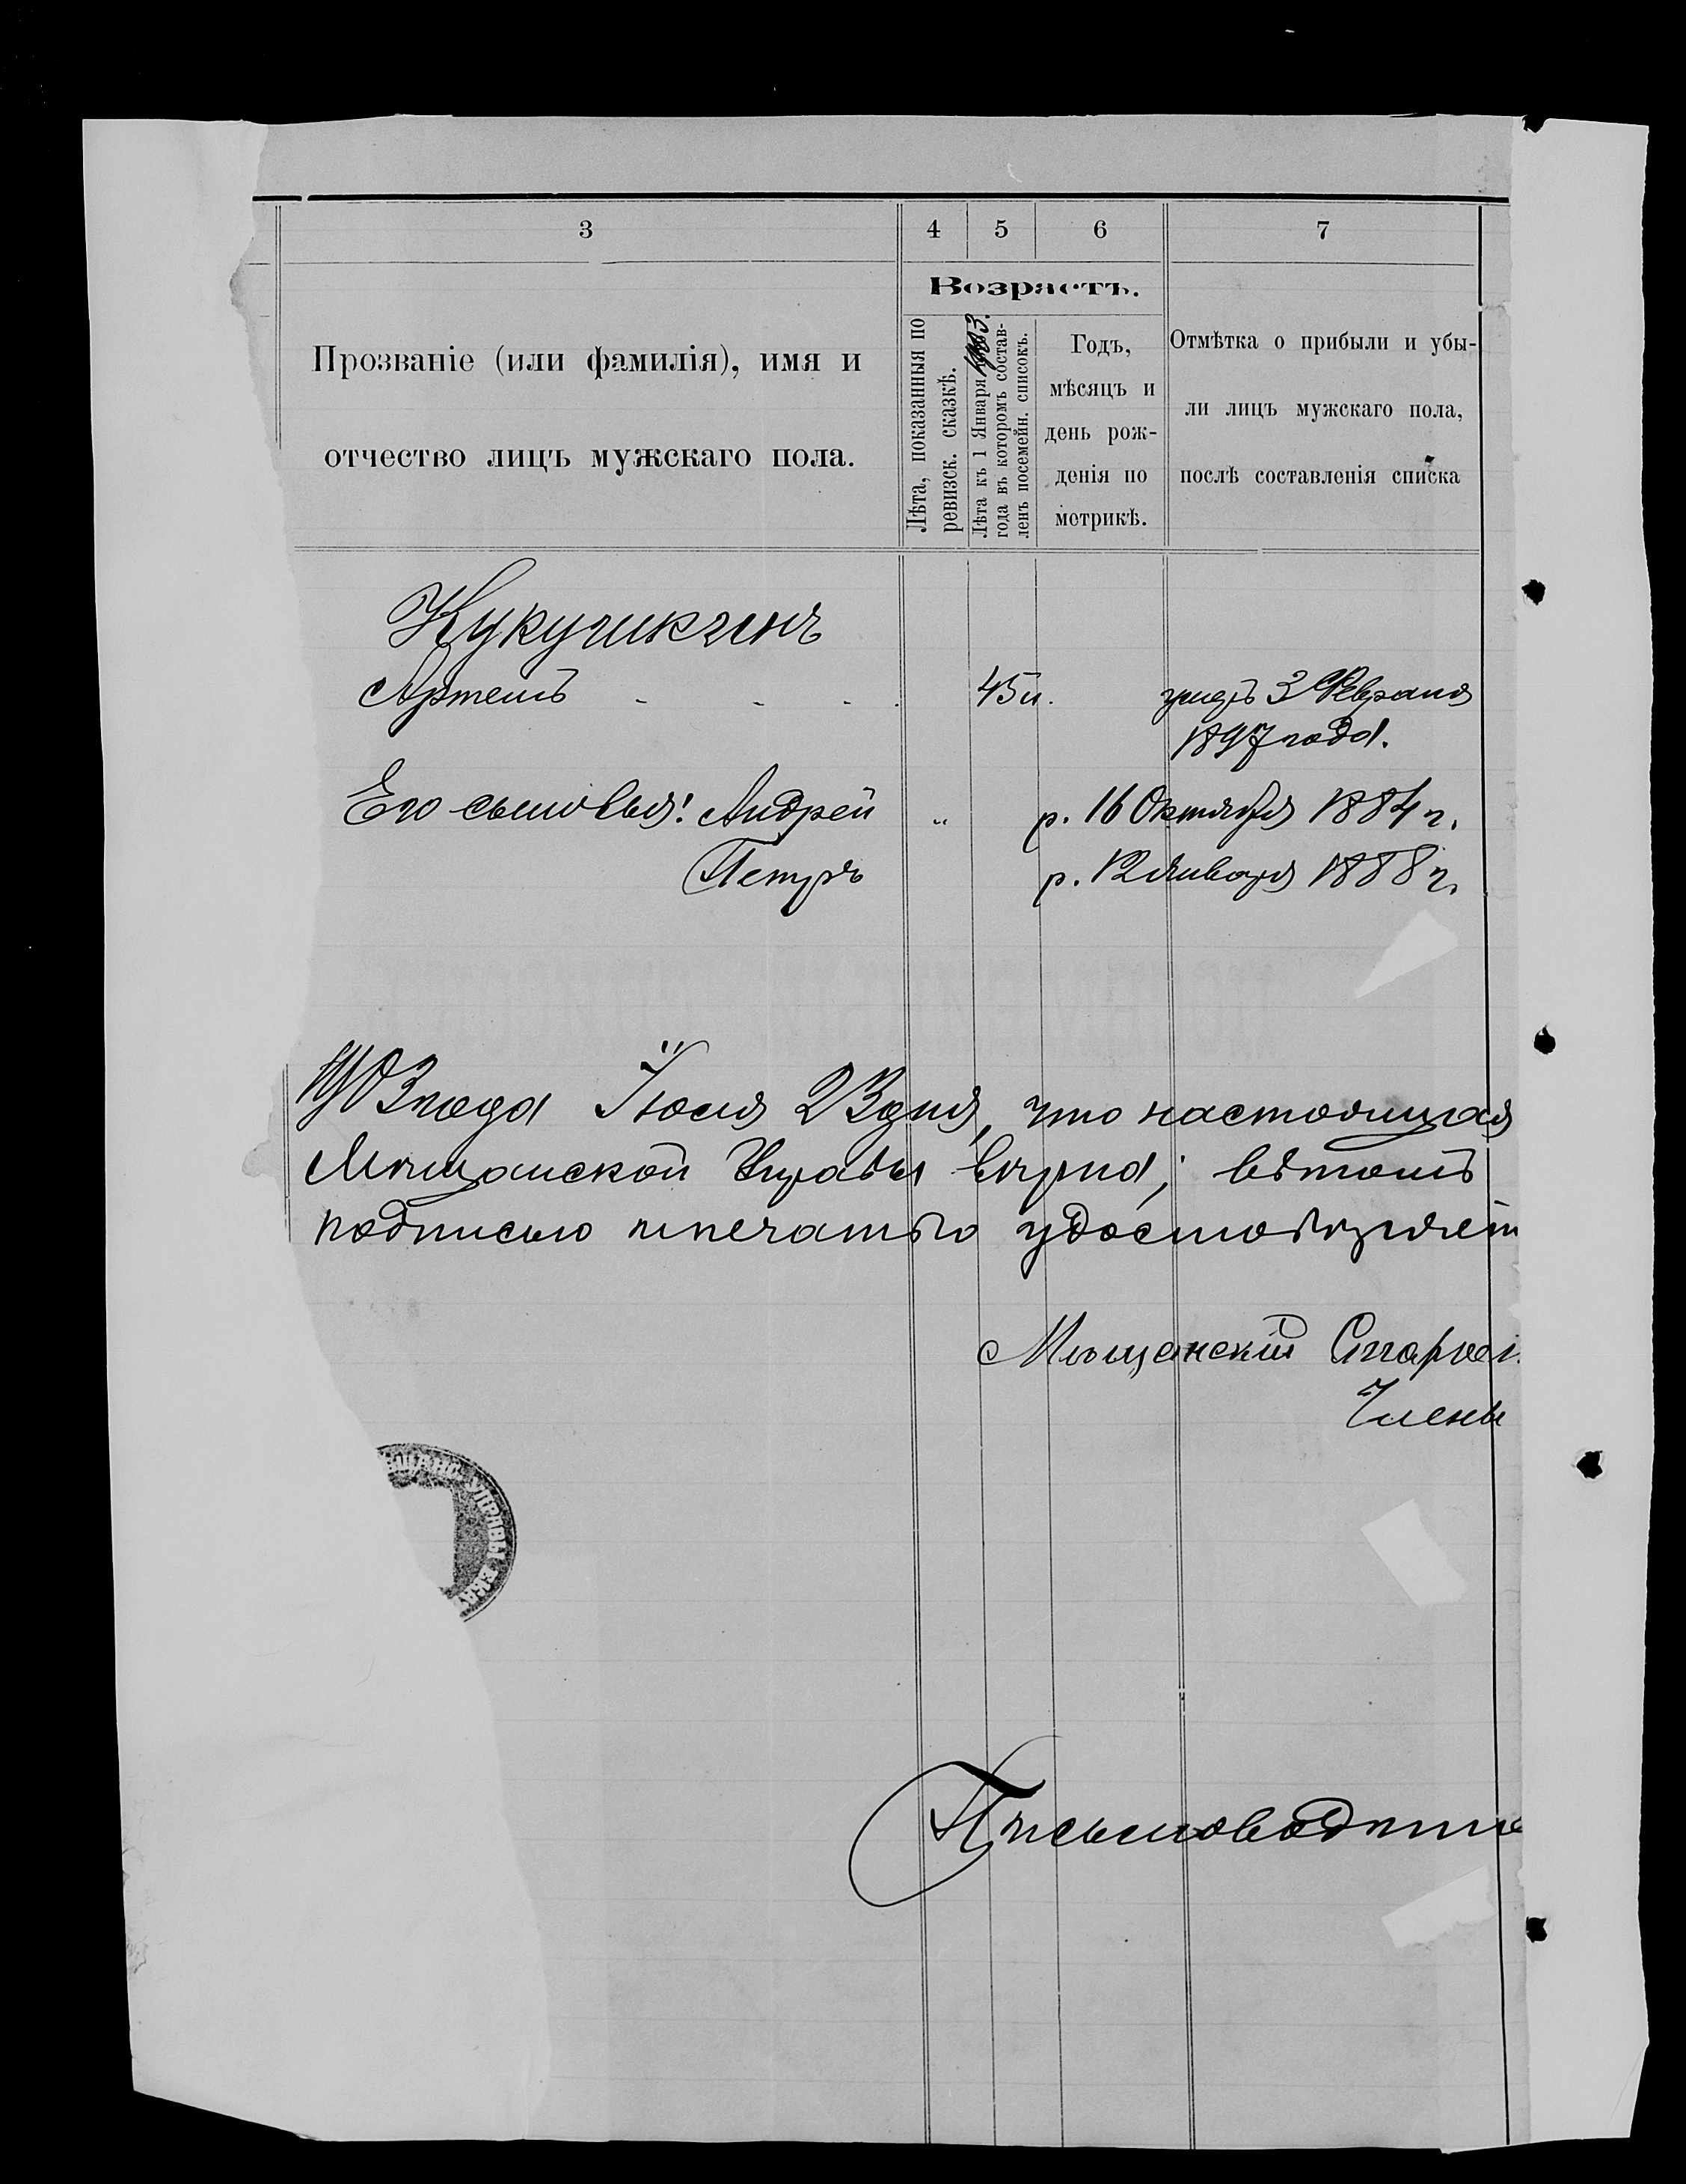 3 4 5 6 7
Возрастъ.
Прозваніе (или фамилія), имя и
отчество лицъ мужскаго пола.
Лѣта, показанныя по
ревизск. сказкѣ.
Лѣта къ 1 Января 1903.
года въ которомъ состав-
ленъ посемейн. списокъ.
Годъ,
мѣсяцъ и
день рож-
денія по
метрикѣ.
Отмѣтка о прибыли и убы-
ли лицъ мужскаго пола,
послѣ составленія списка
Артемъ - - - . 45 л. умеръ 3 Февраля
1897 года.
Его сыновья: Андрей " р. 16 Октября 1884 г.
Петръ р. 12 Января 1888 г.
1903 года Іюля 23 дня, что настоящая
Мѣщанской Управы вѣрна, въ томъ
подписью и печатью удостовѣряет
Мѣщанскій Старо
Члены
ѢЩАНС. УПРАВЫ ЕКАТ
Письмоводите